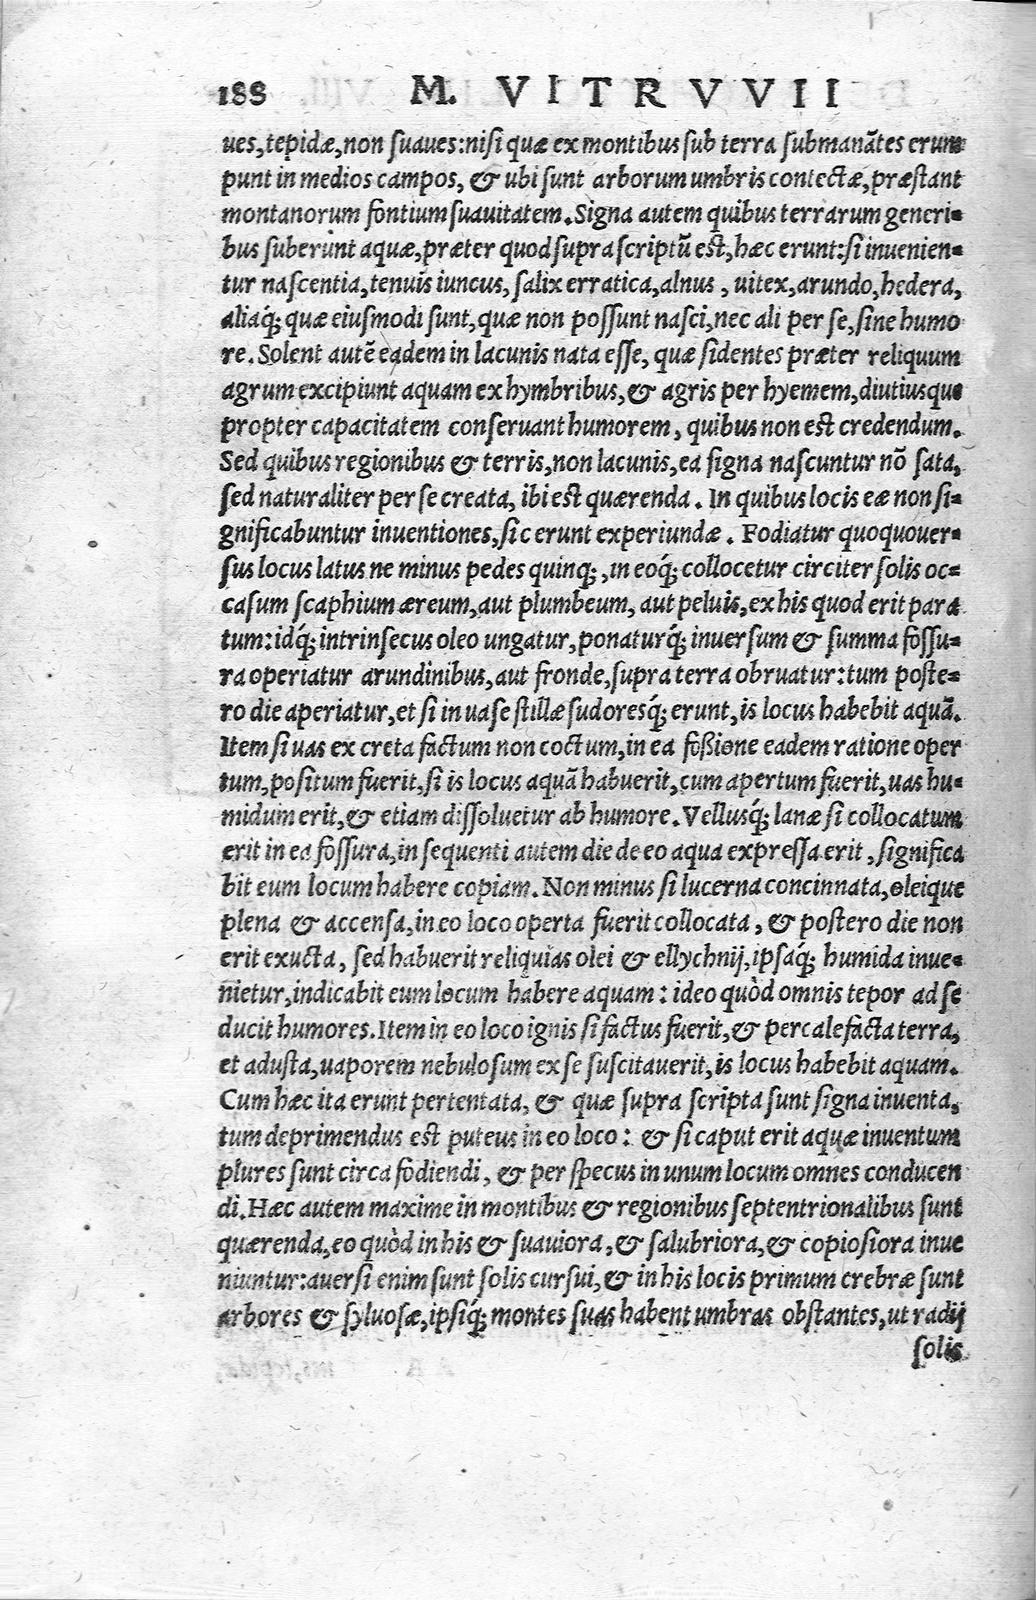 188 M. VITRVVII
ues, tepidæ, non suaues: nisi quæ ex montibus sub terra submanãtes erum
punt in medios campos, & ubi sunt arborum umbris contectæ, præstant
montanorum fontium suauitatem. Signa autem quibus terrarum generi-
bus suberunt aquæ, præter quod supra scriptũ est, hæc erunt: si inuenien-
tur nascentia, tenuis iuncus, salix erratica, alnus, uitex, arundo, hedera,
aliaq́; quæ eiusmodi sunt, quæ non possunt nasci, nec ali per se, sine humo
re. Solent autẽ eadem in lacunis nata esse, quæ sidentes præter reliquum
agrum excipiunt aquam ex hymbribus, & agris per hyemem, diutiusque
propter capacitatem conseruant humorem, quibus non est credendum.
Sed quibus regionibus & terris, non lacunis, ea signa nascuntur nõ sata,
sed naturaliter per se creata, ibi est quærenda. In quibus locis eæ non si-
gnificabuntur inuentiones, sic erunt experiundæ. Fodiatur quoquouer-
sus locus latus ne minus pedes quinq;, in eoq́; collocetur circiter solis oc-
casum scaphium æreum, aut plumbeum, aut peluis, ex his quod erit para
tum: idq́; intrinsecus oleo ungatur, ponaturq́; inuersum & summa fossu-
ra operiatur arundinibus, aut fronde, supra terra obruatur: tum poste-
ro die aperiatur, et si in uase stillæ sudoresq́; erunt, is locus habebit aquã.
Item si uas ex creta factum non coctum, in ea foßione eadem ratione oper
tum, positum fuerit, si is locus aquã habuerit, cum apertum fuerit, uas hu-
midum erit, & etiam dissoluetur ab humore. Vellusq́; lanæ si collocatum
erit in ea fossura, in sequenti autem die de eo aqua expressa erit, significa
bit eum locum habere copiam. Non minus si lucerna concinnata, oleique
plena & accensa, in eo loco operta fuerit collocata, & postero die non
erit exucta, sed habuerit reliquias olei & ellychnij, ipsaq́; humida inue-
nietur, indicabit eum locum habere aquam: ideo quòd omnis tepor ad se
ducit humores. Item in eo loco ignis si factus fuerit, & percalefacta terra,
et adusta, uaporem nebulosum ex se suscitauerit, is locus habebit aquam.
Cum hæc ita erunt pertentata, & quæ supra scripta sunt signa inuenta,
tum deprimendus est puteus in eo loco: & si caput erit aquæ inuentum
plures sunt circa fodiendi, & per specus in unum locum omnes conducen
di. Hæc autem maxime in montibus & regionibus septentrionalibus sunt
quærenda, eo quòd in his & suauiora, & salubriora, & copiosiora inue
niuntur: auersi enim sunt solis cursui, & in his locis primum crebræ sunt
arbores & syluosæ, ipsiq́; montes suas habent umbras obstantes, ut radij
solis